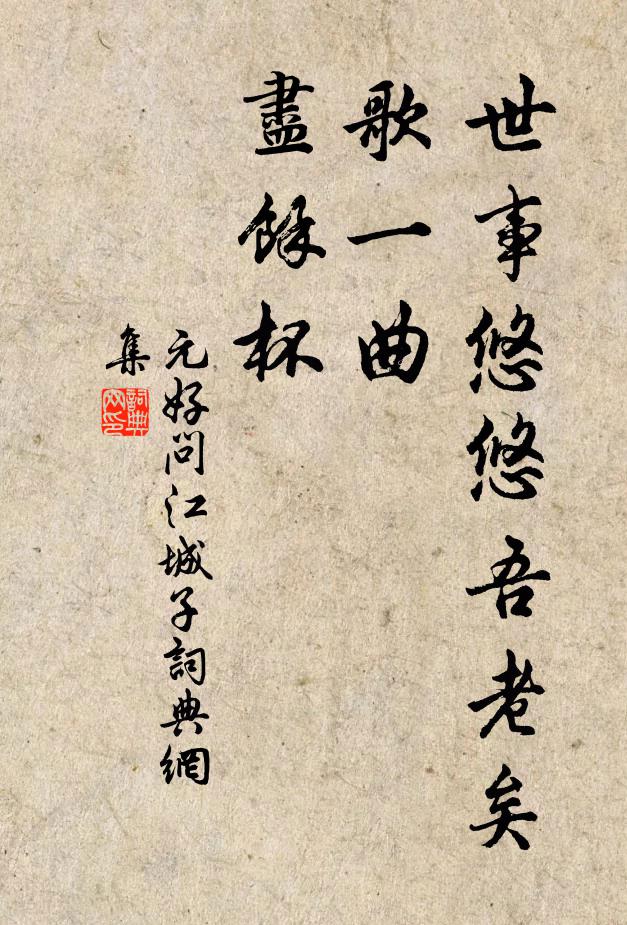 世事悠悠吾老矣
歌一曲
盡餘杯
元好問江城子詞典網
集
詞典
网印